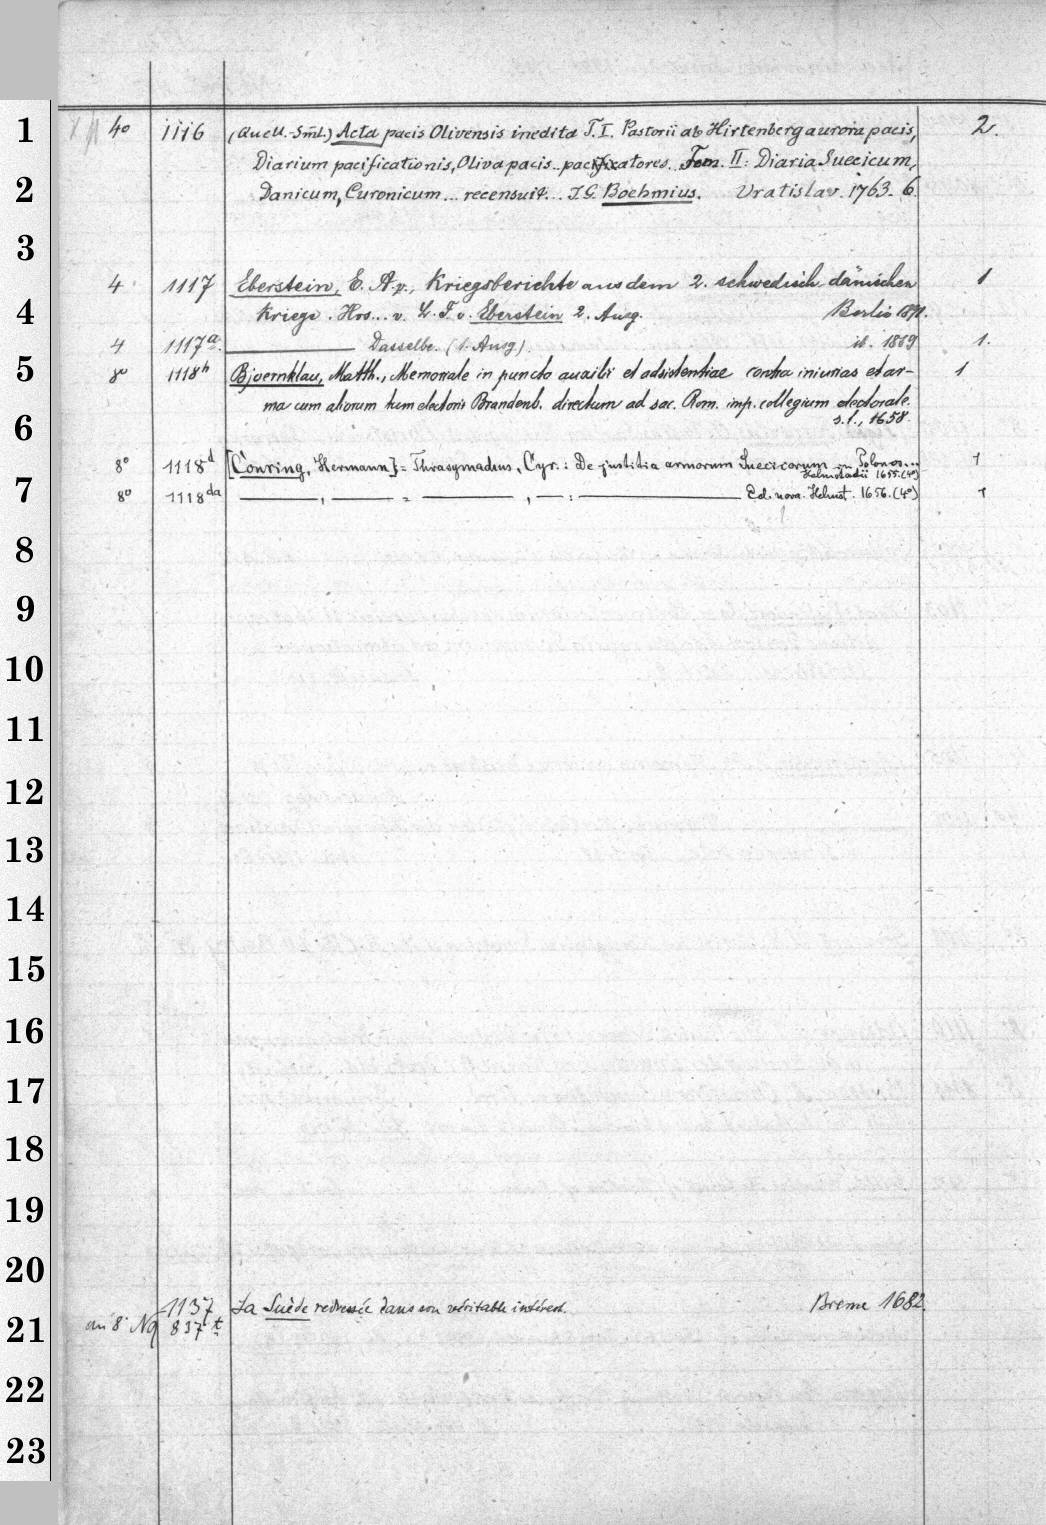 1 4o 1116 (Auch-Sml.) Acta pacis Olivensis inedita T. I. Pastorii ab Hirtenberg aurora pacis, 2.
Diarium pacificationis, Oliva pacis.. pacificatores.. Tom. II: Diaria Suecicum,
2 Danicum, Curonicum... recensuit... J. G. Boehmius. Vratislav. 1763-6.
3
4 1117 Eberstein, E. A. v., Kriegsberichte aus dem 2. schwedisch-dänischen 1
4 Kriege. Hrs... v. L. F. v. Eberstein 2. Ausg. Berlin 1891.
4 1117a. Dasselbe. (1. Ausg.) ib. 1889 1.
5 8o 1118b Bjoernklau, Matth., Memoriale in puncto auxilii et adsistentiae contra iniurias et ar- 1
ma cum aliorum tum electoris Brandenb. directum ad sac. Rom. imp. collegium electorale.
6 s. l., 1658.
8o 1118d [Conring, Hermann] = Thrasymachus, Cyr.: De justitia armorum Suecicorum in Polonos... 1
Helmstadii 1655. (4o)
7 8o 1118da , = , : Ed. nova. Helmst. 1656. (4o) 1
8
9
10
11
12
13
14
15
16
17
18
19
20
1137 La Suède redressée dans son véritable intérest. Breme 1682.
21 an 8° Nq 837t
22
23